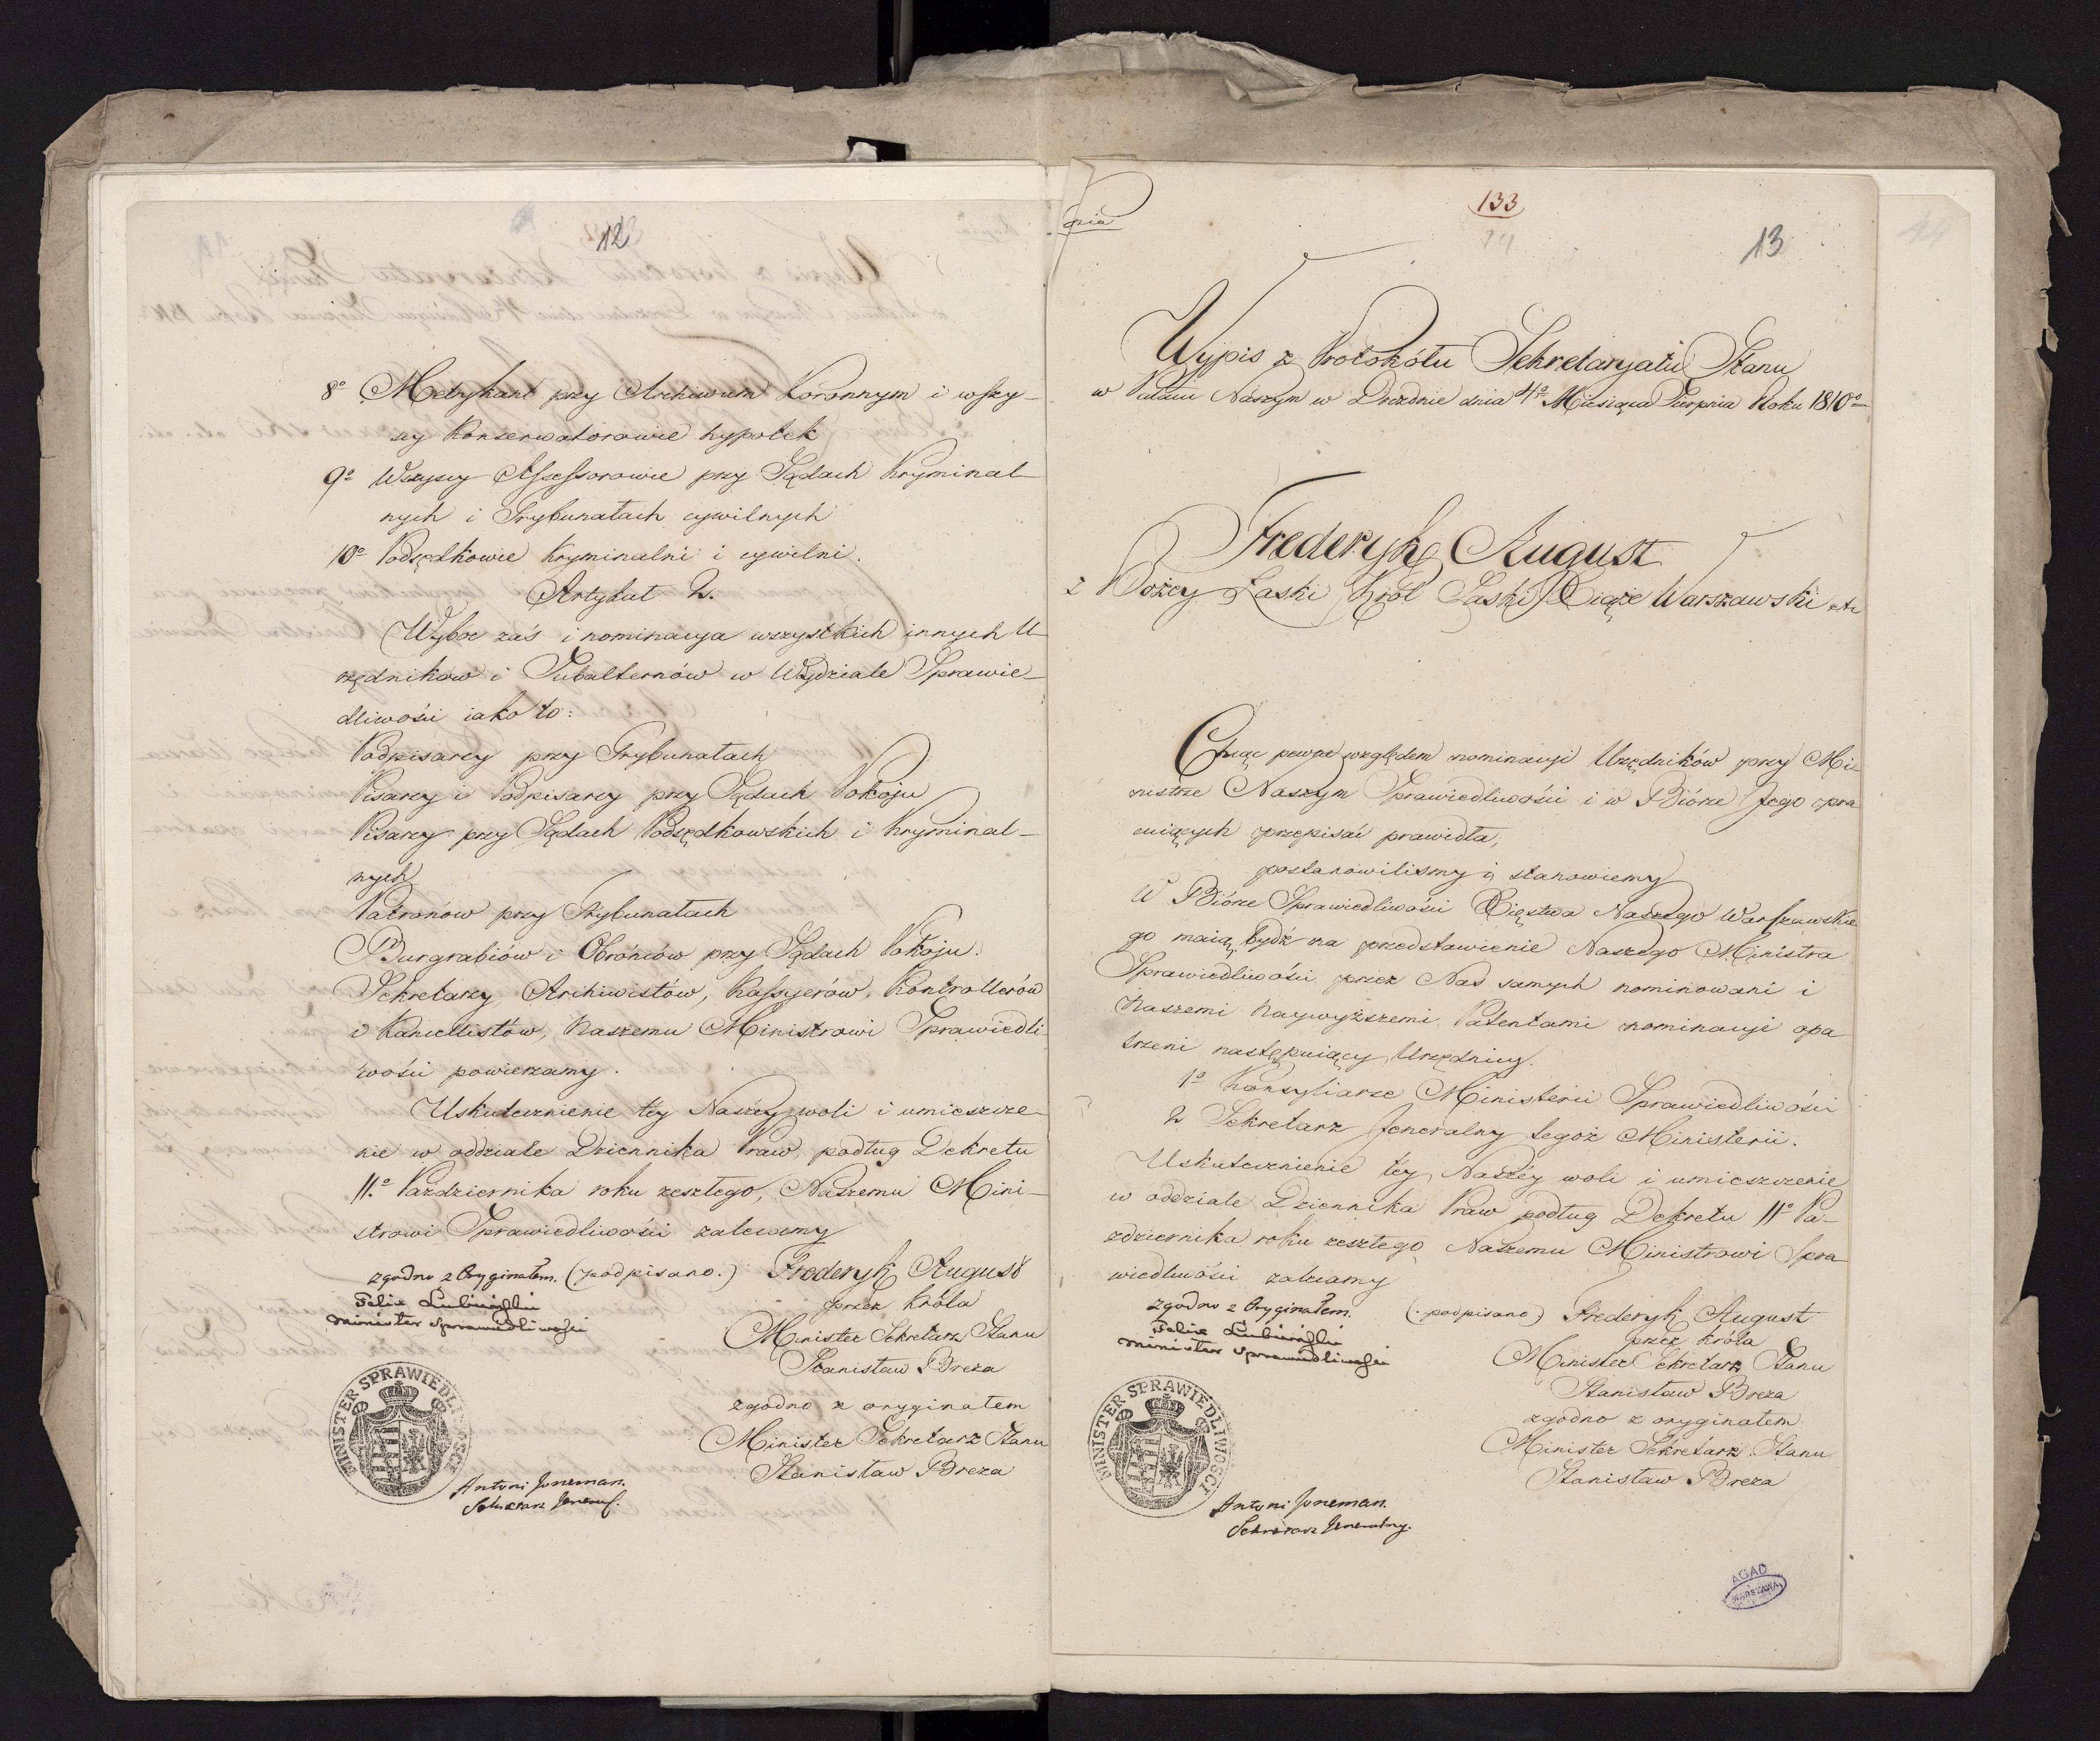 12
8o Metrykant przy Archiwum Koronnym i wszy-
scy Konserwatorowie hypotek
9o Wszyscy Assessorowie przy Sądach Kryminal-
nych i Trybunałach cywilnych
10o Podsędkowie kryminalni i cywilni.
Artykuł 2.
Wybor zaś i nominacya wszystkich innych U-
rzędników i Subalternów w Wydziale Sprawie-
dliwości iako to:
Podpisarcy przy Trybunałach
Pisarcy i Podpisarcy przy Sądach Pokoju
Pisarcy przy Sądach Podsędkowskich i Kryminal-
nych
Patronów przy Trybunałach
Burgrabiów i Obrońców przy Sądach Pokoju.
Sekretarzy Archiwistów, Kassyerów, Kontrollerów
i Kancellistów, Naszemu Ministrowi Sprawiedli-
wości powierzamy.
Uskutecznienie téy Naszéy woli i umieszcze-
nie w oddziale Dziennika Praw, podług Dekretu
11.o Pazdziernika roku zeszłego, Naszemu Mini-
strowi Sprawiedliwości zalecamy
zgodno z Oryginałem. (podpisano.) Frederyk August
Felix Lubieński
Minister Sprawiedliwości
przez Króla
Minister Sekretarz Stanu
Stanisław Breza
zgodno z oryginałem
Minister Sekretarz Stanu
Stanisław Breza
MINISTER SPRAWIEDLIWOSCI
Antoni Joneman.
Sekretarz Jeneral.
pia
133
14
13
Wypis z Protokółu Sekretaryatu Stanu
w Pałacu Naszym w Dreźnie dnia 4o Miesiąca Sierpnia Roku 1810o
Frederyk August
z Bożey Łaski Król Saski Xiąże Warszawski etc
Chcąc pewne względem nominacyi Urzędników przy Mi-
nistrze Naszym Sprawiedliwości i w Biórze Jego pra
cuiących przepisać prawidła,
postanowilismy i stanowiemy
W Biórze Sprawiedliwości Xięstwa Naszego Warszawskie
go maią bydź na przedstawienie Naszego Ministra
Sprawiedliwości przez Nas samych nominowani i
Naszemi Naywyższemi Patentami nominacyi opa
trzeni następuiący Urzędnicy.
1o Konsyliarze Ministerii Sprawiedliwości
2 Sekretarz Jeneralny tegoż Ministerii.
Uskutecznienie téy Naszéy woli i umieszczenie
w oddziale Dziennika Praw podług Dekretu 11o Pa-
zdziernika roku zeszłego Naszemu Ministrowi Spra
wiedliwości zalecamy
zgodno z Oryginałem. (podpisano) Frederyk August
Felix Lubieński
Minister Sprawiedliwości
przez Króla
Minister Sekretarz Stanu
Stanisław Breza
zgodno z oryginałem
Minister Sekretarz Stanu
Stanisław Breza
MINISTER SPRAWIEDLIWOSCI
Antoni Joneman.
Sekretarz Jeneralny.
AGAD
WARSZAWA
14